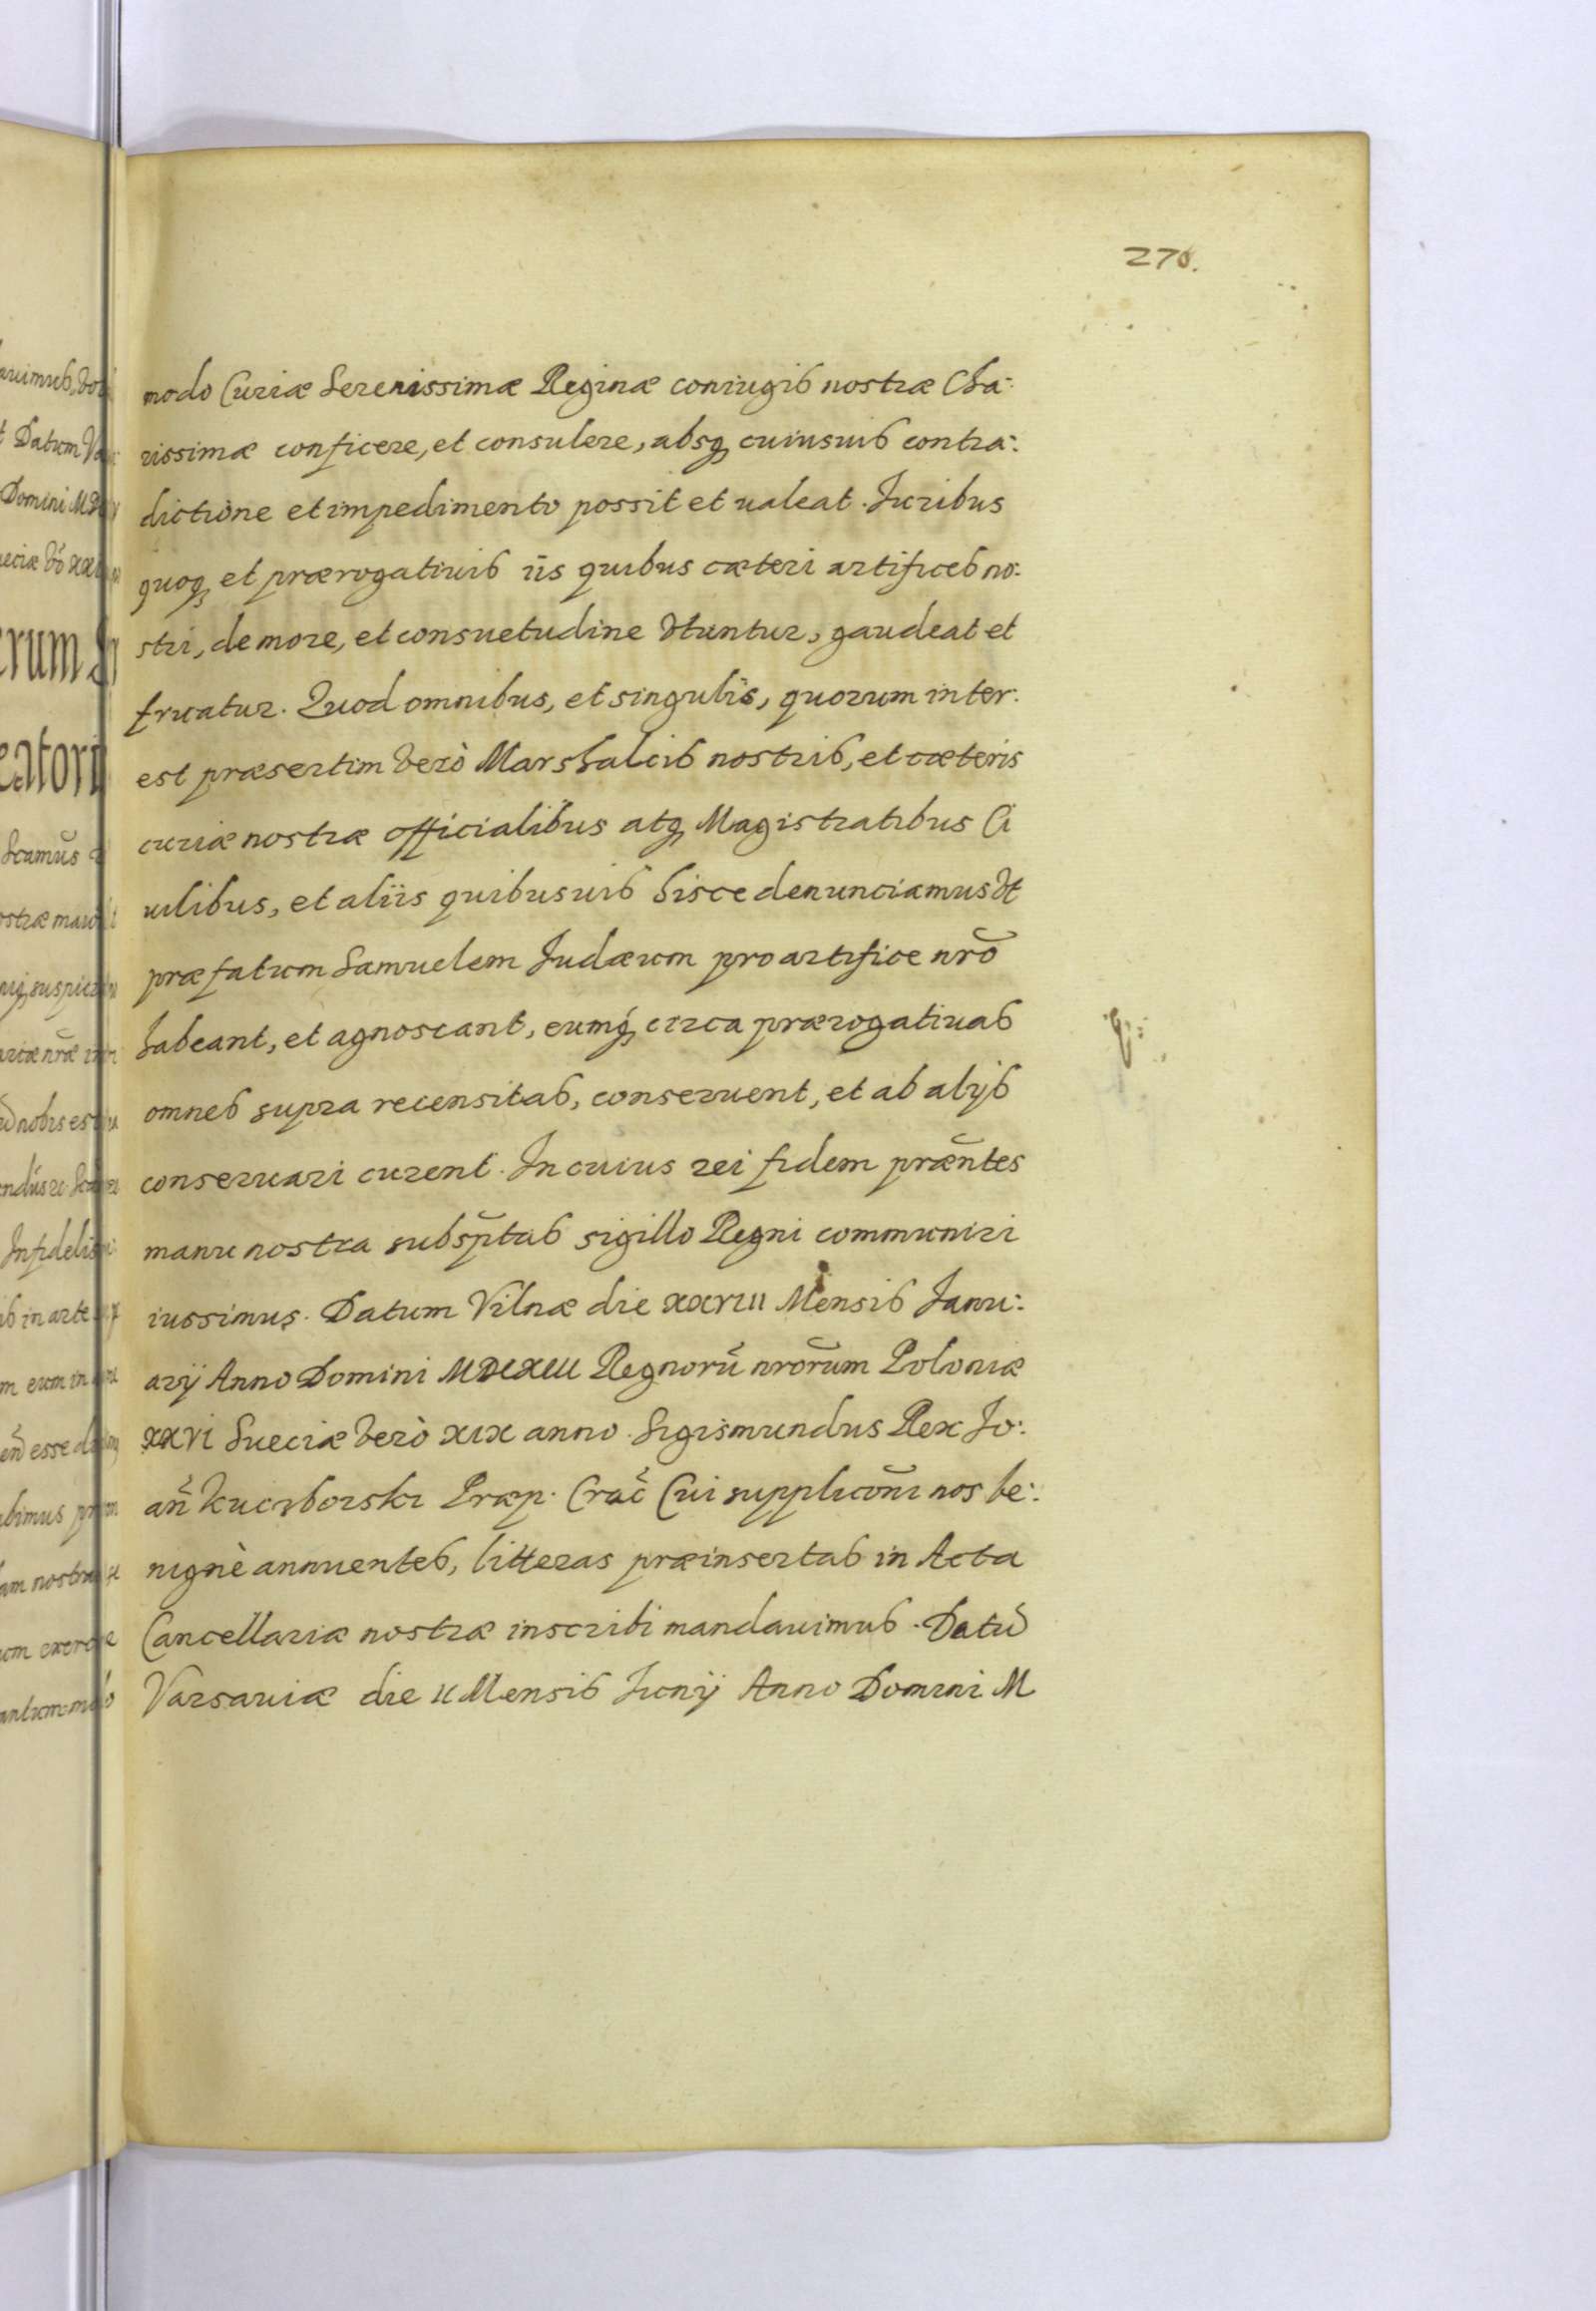 270.
modo Curiæ Serenissimæ Reginæ coniugis nostræ Cha:
rissimæ conficere, et consulere, absq cuiusuis contra:
dictione et impedimento possit et ualeat. Iuribus
quoq et prærogatiuis iis quibus cæteri artifices no:
stri, de more, et consuetudine vtuntur, gaudeat et
fruatur. Quod omnibus, et singulis, quorum inter:
est præsertim verò Marshalcis nostris, et cæteris
curiæ nostræ officialibus atq Magistratibus Ci
uilibus, et aliis quibusuis hisce denunciamus vt
præfatum Samuelem Iudæum pro artifice nrõ
habeant, et agnoscant, eumq circa prærogatiuas
omnes supra recensitas, conseruent, et ab alijs
conseruari curent. In cuius rei fidem præ̃ntes
manu nostra subsp̃tas sigillo Regni communiri
iussimus. Datum Vilnæ die XXVIII Mensis Ianu:
arij Anno Domini MDCXIII Regnorũ nrõrum Poloniæ
XXVI Sueciæ verò XIX anno. Sigismundus Rex Io:
añ Kuczborski Præp. Crac̃ Cui supplicõni nos be:
nignè annuentes, litteras præinsertas in Acta
Cancellariæ nostræ inscribi mandauimus. Datũ
Varsauiæ die II Mensis Iunij Anno Domini M